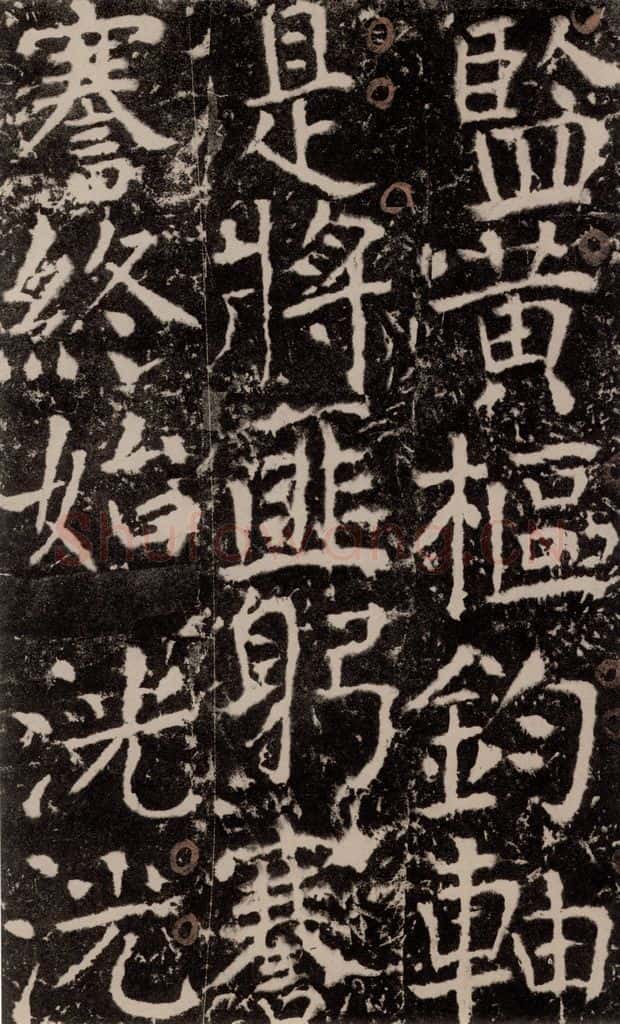 監黄樞鈞軸
是將匪躬謇
謇終始洸洸
Shufawang.CN